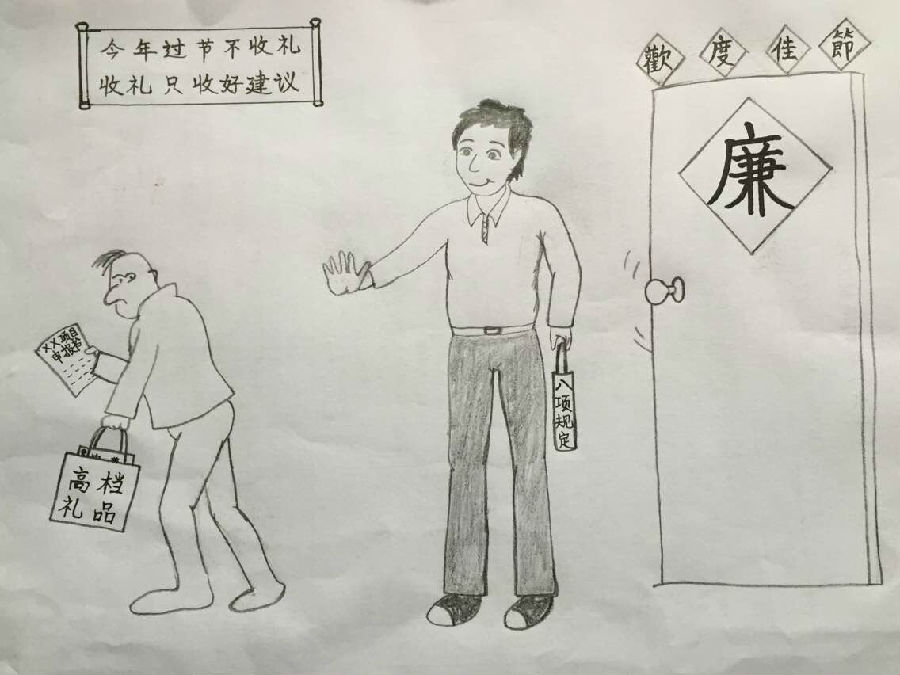 今年过节不收礼
收礼只收好建议
歡度佳節
廉
XX项目
申报书
八项规定
高档
礼品